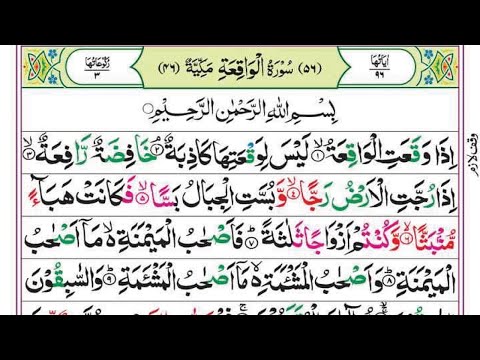 اٰیَاتُهَا ٩٦ (٥٦) سُوْرَةُ الْوَاقِعَةِ مَكِّيَّةٌ (٤٦) رُكُوْعَاتُهَا ٣
بِسْمِ اللّٰهِ الرَّحْمٰنِ الرَّحِيْمِ
اِذَا وَقَعَتِ الْوَاقِعَةُ ۙ١ لَيْسَ لِوَقْعَتِهَا كَاذِبَةٌ ۘ٢ خَافِضَةٌ رَّافِعَةٌ ۙ٣
وقف لازم
اِذَا رُجَّتِ الْاَرْضُ رَجًّا ۙ٤ وَّبُسَّتِ الْجِبَالُ بَسًّا ۙ٥ فَكَانَتْ هَبَآءً
مُّنْۢبَثًّا ۙ٦ وَّكُنْتُمْ اَزْوَاجًا ثَلٰثَةً ۗ٧ فَاَصْحٰبُ الْمَيْمَنَةِ ۙ مَاۤ اَصْحٰبُ
الْمَيْمَنَةِ ۗ٨ وَاَصْحٰبُ الْمَشْـَٔمَةِ ۙ مَاۤ اَصْحٰبُ الْمَشْـَٔمَةِ ۗ٩ وَالسّٰبِقُوْنَ